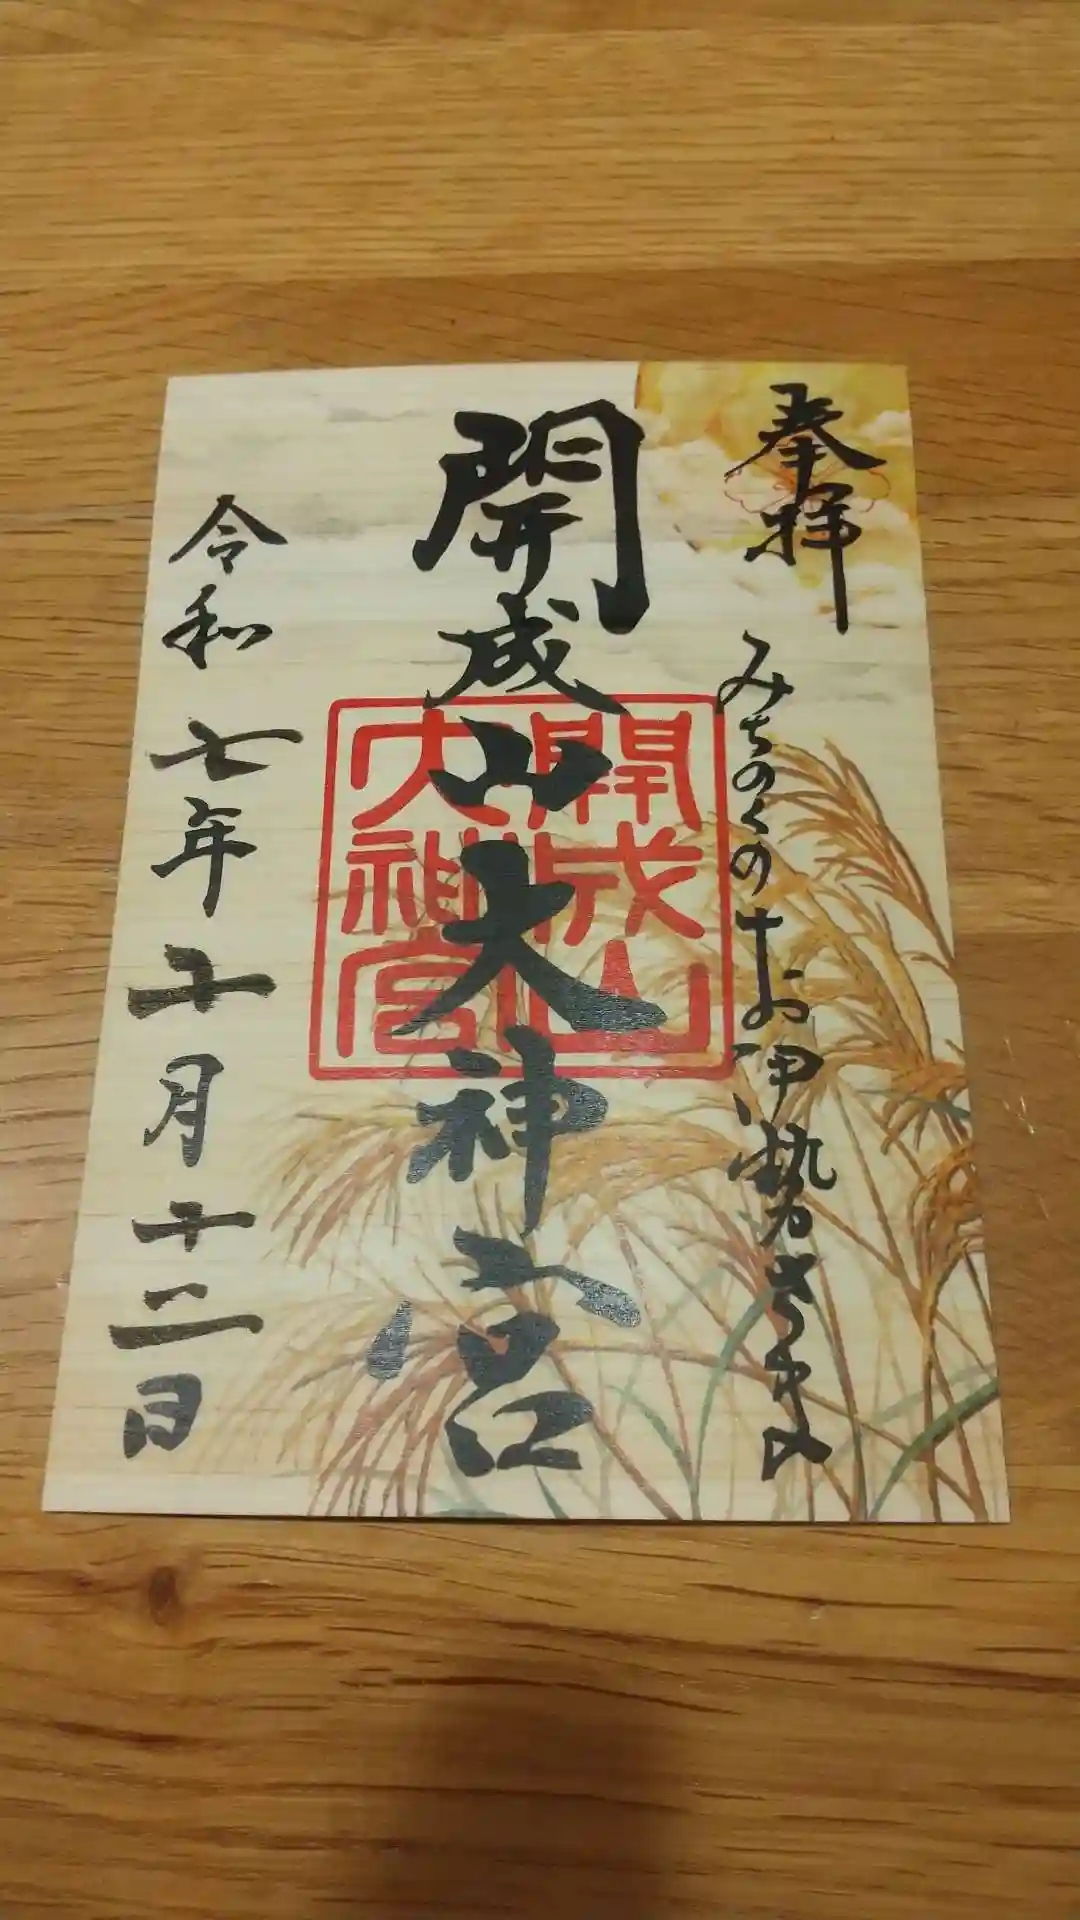 奉拝
みちのくのお伊勢さま
開成山大神宮
開成山
大神宮
令和七年十月十二日